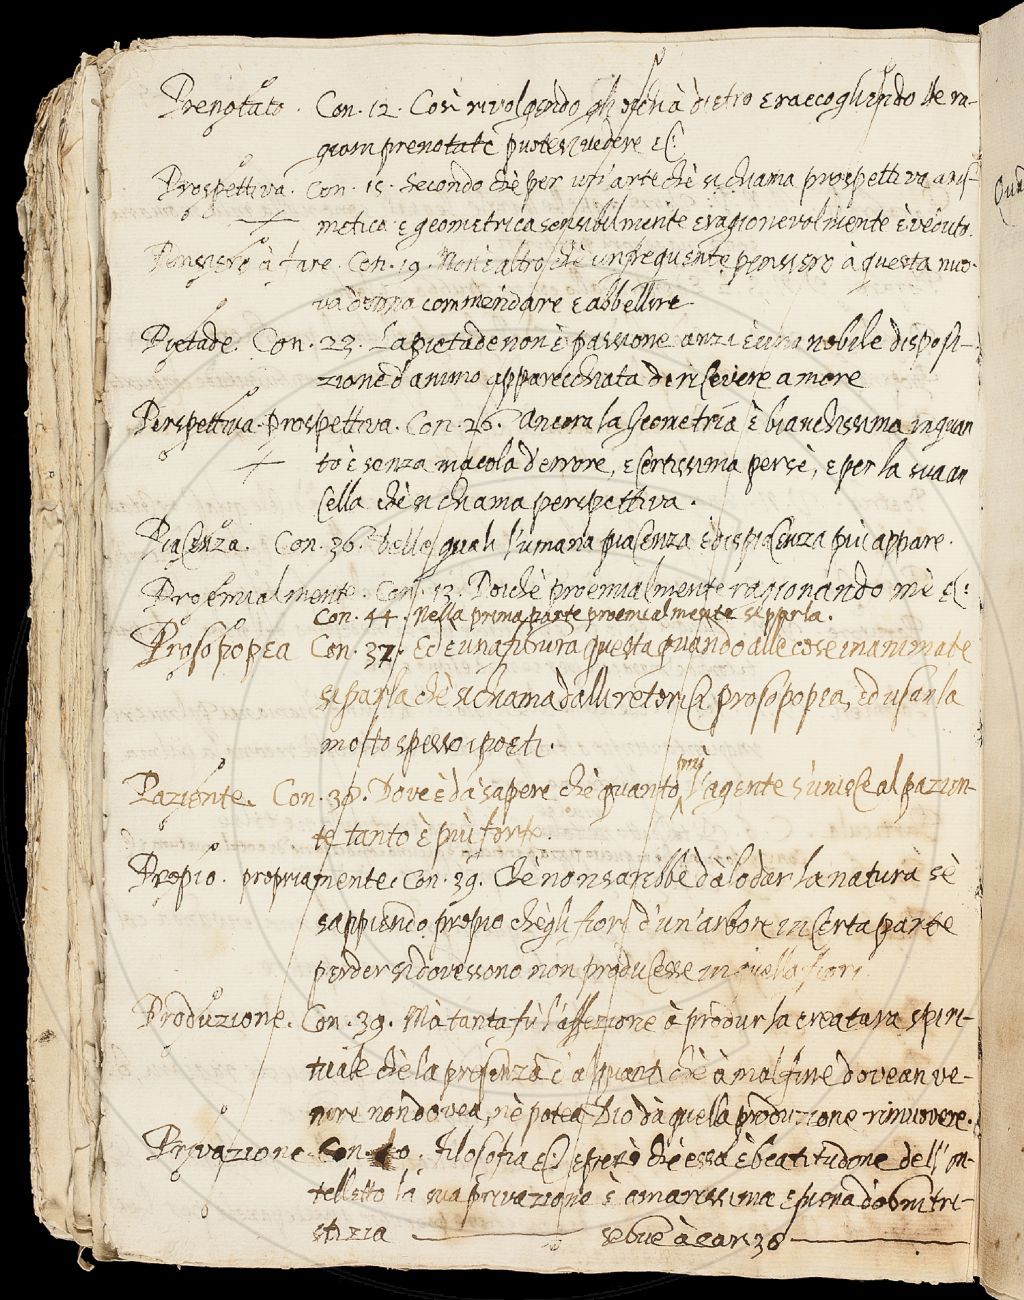 Prenotato. Con. 12. Così rivolgendo gli occhi à dietro e raccogliendo lle ra-
gioni prenotate puotesi vedere &c:
Prospettiva. Con. 15. Secondo chè per un'arte chè si chiama prospettiva aris-
metica e geometrica sensibilmente e ragionevolmente è veduto.
Pensiero à fare. Con. 19. Non è altro chè un frequente pensiero à questa nuo-
va donna commendare e abbellire
Pietade. Con. 22. La pietade non è passione anzi è una nobile disposi-
zione d'animo apparecchiata di ricevere amore
Perspettiva. Prospettiva. Con. 26. Ancora la Geometria è bianchissima inquan
to è senza macola d'errore, e certissima per sè, e per la sua an
cella chè si chiama perspettiva.
Piacenza. Con. 36. delle quali l'umana piacenza è dispiacenza più appare.
Proemialmente. Con. 13. Poichè proemialmente ragionando mè &c:
Con. 44. Nella prima parte proemialmente si parla.
Prosopopea Con. 37. Ed è una figura questa quando alle cose inanimate
si parla chè si chiama dalli retorici prosopopea, ed usanla
molto spesso i poeti.
più
Paziente. Con. 38. Dove è dà sapere chè quanto l'agente s'unisce al pazien-
te tanto è più forte.
Propio. propriamente. Con. 39. Chè non sarebbe dà lodar la natura sè
sappiendo propio chègli fiori d'un'arbore in certa parte
perder si dovessono non producesse in quella fiori
Produzione. Con. 39. Mà tanta fù l'affezione à produr la creatura spiri-
tuale chè la presenza d'alquanti chè à mal fine dovean ve-
nire non dovea, nè potea Dio dà quella produzione rimuovere.
Privazione. Con. 40. Filosofia &c: e però chè essa è beatitudone dell'in-
telletto la sua privazione è amarissima e piena d'ogni tri-
stizia segue à car. 38